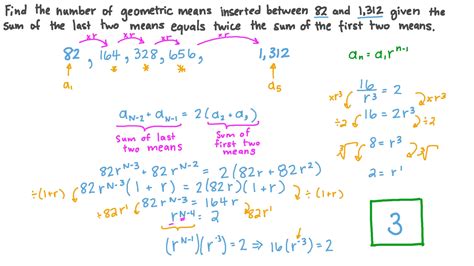 Find the number of geometric means inserted between 82 and 1,312 given the
sum of the last two means equals twice the sum of the first two means.
xr xr xr xr
82, 164, 328, 656, 1,312
* * *
a₁ a₅
aₙ = a₁rⁿ⁻¹
a_{N-2} + a_{N-1} = 2(a₂ + a₃)
sum of last two means
sum of first two means
82r^{N-3} + 82r^{N-2} = 2(82r + 82r²)
÷(1+r) 82r^{N-3}(1 + r) = 2(82r)(1+r) ÷(1+r)
÷82r¹ 82r^{N-3} = 164r
r^{N-4} = 2 ÷82r¹
(r^{N-1})(r⁻³) = 2 ⇒ 16(r⁻³) = 2
xr³ 16/r³ = 2 xr³
÷2 16 = 2r³ ÷2
∛ 8 = r³ ∛
2 = r¹
3